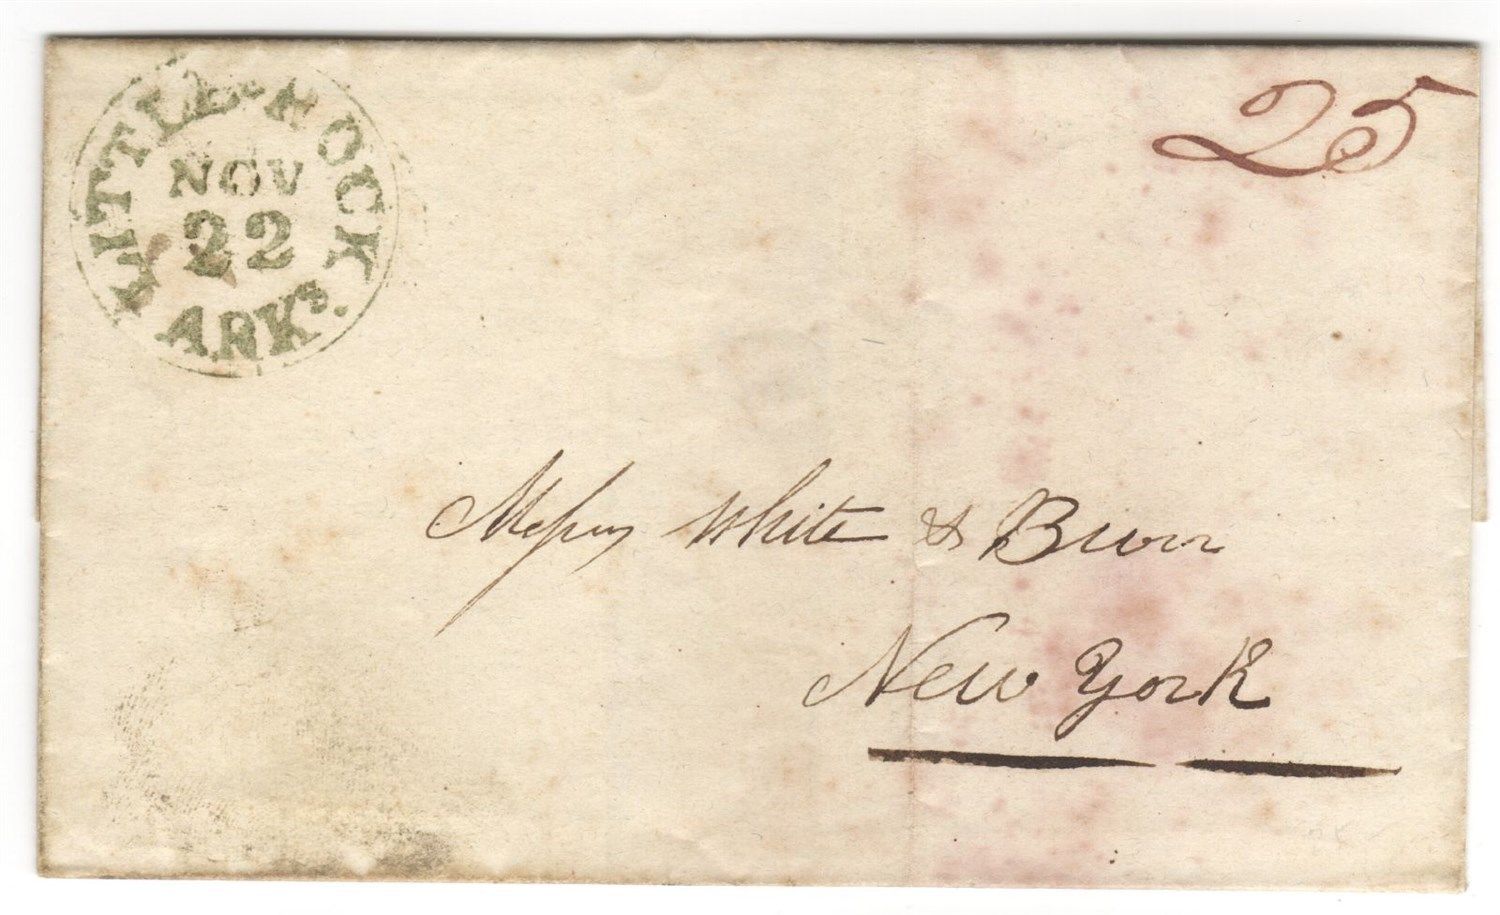 LITTLE ROCK
NOV
22
ARKs.
25
Messrs White & Burr
New York